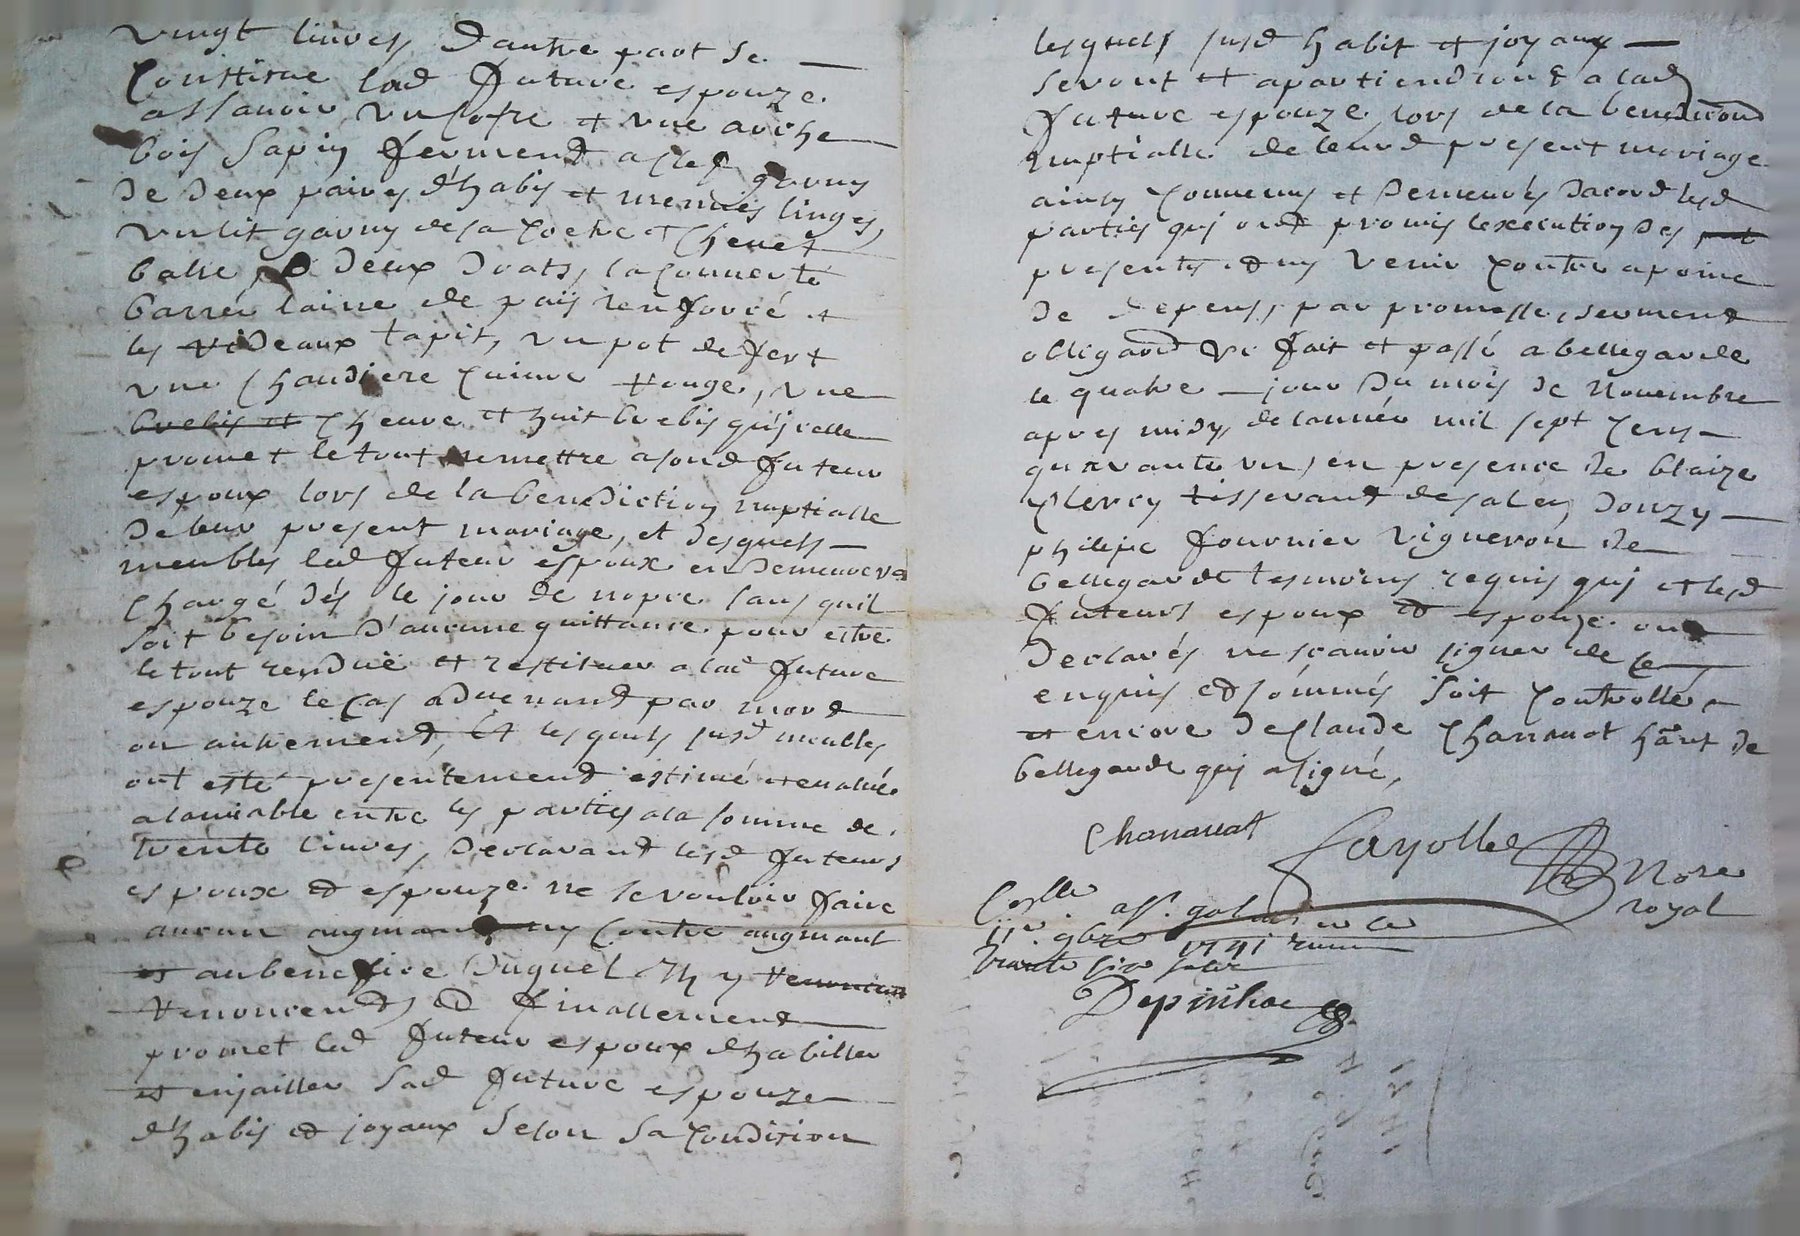 vingt livres, d'autre part se
constitue lad future espouze
assauoir vn cofre et vne arche
bois sapin fermend a clef garnys
de deux paires d'habis et menües linges,
vn lit garny de sa coetre et cheuet
balse, deux drats, la couuerte
barrée laine de païs renforcé et
les rideaux tapit, vn pot de fert
vne chaudiere cuiure rouge, vne
brebis et cheure et huit brebis qu'jcelle
promet le tout remettre a sond futeur
espoux lors de la benediction nuptialle
de leur present mariage, et desquels
meubles led futeur espoux en demeurera
chargé dés le jour de nopce sans quil
soit besoin d'aucune quittance pour estre
le tout rendüe et restituer a lad future
espouze le cas aduenand par mord
ou autremend, et lesquels susd meubles
ont esté presentemend estimé et eualué
a lamiable entre les parties a la somme de
trente liures, declarand lesd futeurs
espoux et espouze ne se vouloir faire
aucun augmant ny contre augmant
et au benefice duquel Ils y
renoncend, et finallemend
promet led futeur espoux d'habiller
et enjailler sad future espouze
d'habis et joyaux selon sa condition
lesquels susd habit et joyaux
seront et apartiendront a lad
future espouze lors de la benediction
nuptialle de leurd present mariage
ainsy conuenus et demeurés dacord lesd
parties quj ond promis lexecution des
presentes et ny venir contre a peine
de depens, par promesse, sermend
obligaond &c fait et passé a bellegarde
le quatre jour du mois de nouembre
apres midy, de lannée mil sept cens
quarante vn, en presence de blaize
clercy tisserand de salen, donzy
philipe fournier vigneron de
bellegarde tesmoins requis quj et lesd
futeurs espoux et espouze ond
declarés ne sçauoir signer de ce
enquis et sommés soit controllé
et encore de Claude Chanauat hant de
bellegarde quj a signé,
Chanauat
Fayolle Nore
royal
Collé a St galmier ce
11e 9bre 1741 reçu
trente six sols
Depinhac